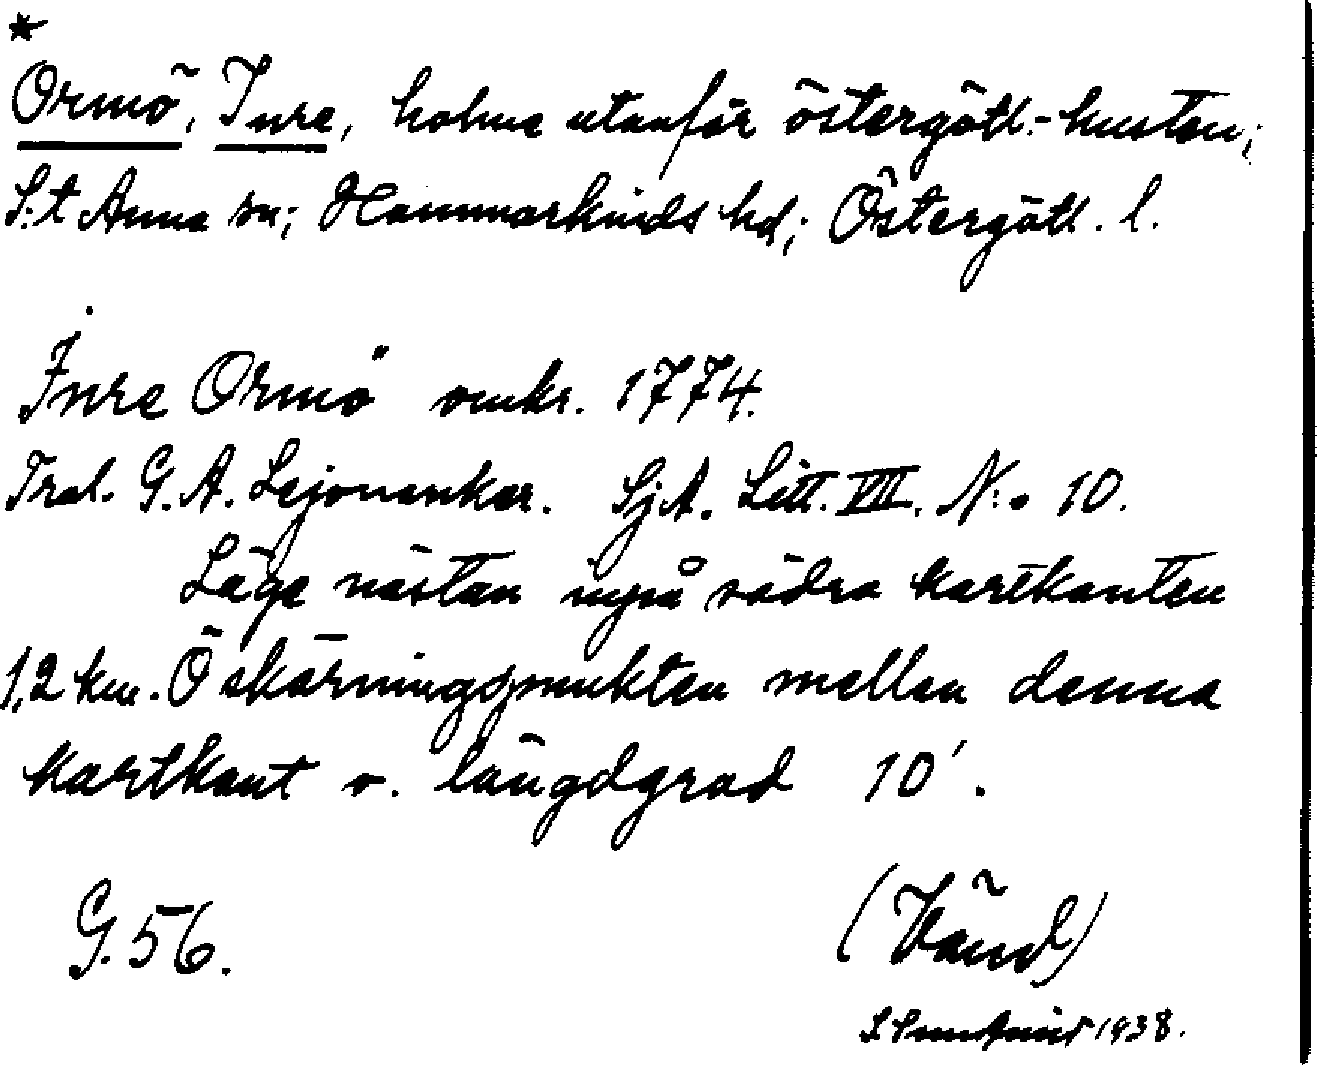 *
Ormö, Inre, holme utanför östergötl.-kusten;
S:t Anna sn; Hammarkinds hd; Östergötl. l.
Inre Ormö omkr. 1774.
Tral. G. A. Lejonankar. SjA. Litt. VIII. N:o 10.
Läge nästan inpå södra kartkanten
1,2 km. Ö skärningspunkten mellan denna
kartkant o. längdgrad 10'.
G. 56.
(Vänd)
1938.